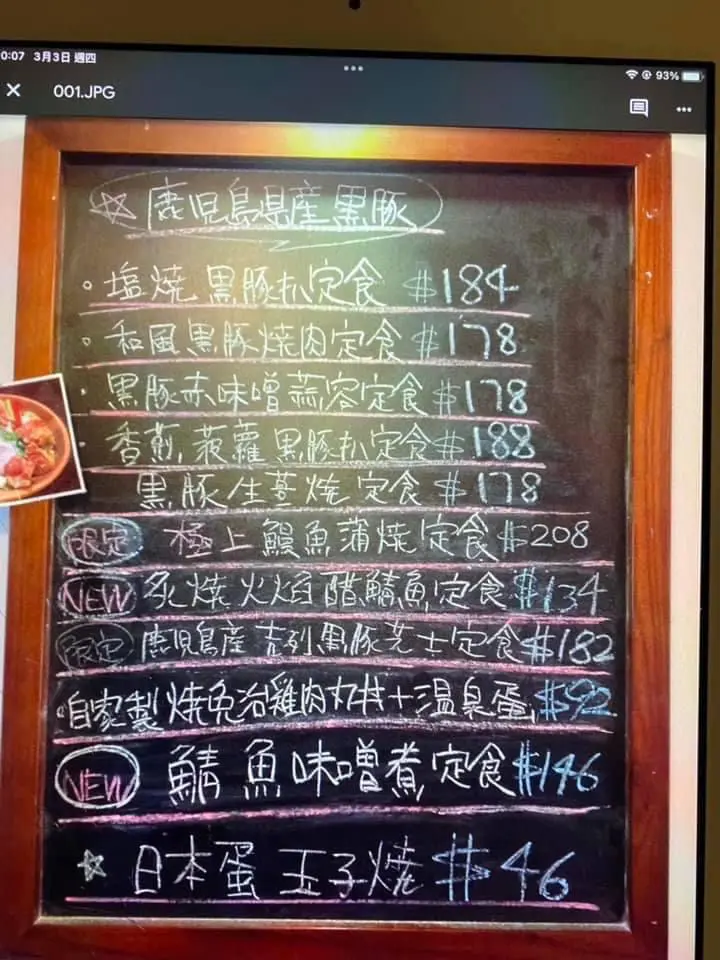 0:07 3月3日 週四
93%
001.JPG
鹿児島県産黒豚
塩焼 黒豚扒定食 $184
和風黒豚焼肉定食 $178
黒豚赤味噌蒜容定食 $178
香煎菠蘿黒豚扒定食 $188
黒豚生薑焼定食 $178
限定 極上鰻魚蒲焼定食 $208
NEW 炙焼火焰醋鯖魚定食 $134
限定 鹿児島産吉列黒豚芝士定食 $182
自家製燒免治雞肉丸丼+温泉蛋 $92
NEW 鯖魚味噌煮定食 $146
日本蛋玉子焼 $46